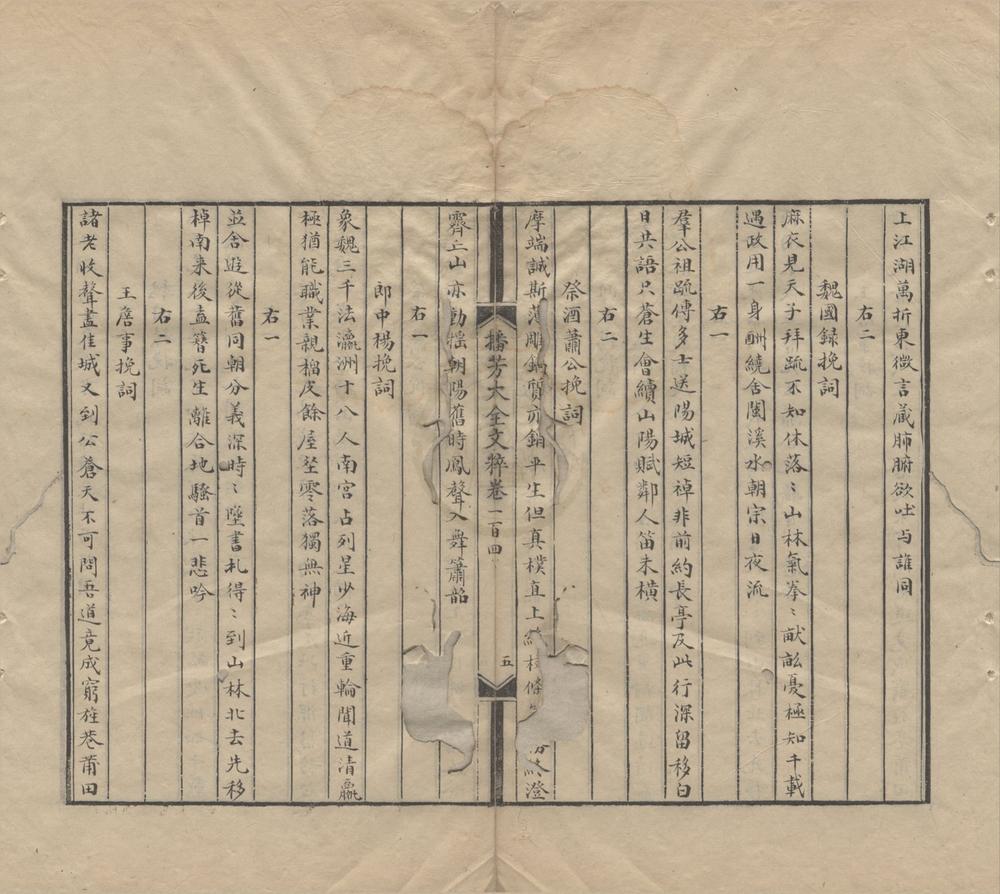 上江湖萬折東微言蔵肺腑欲吐与誰同
右二
魏國録挽詞
麻衣見天子拜疏不知休落〻山林氣拳〻畎畝憂極知千載
遇政用一身酬繞舎閩溪水朝宗日夜流
右一
羣公祖疏傅多士送陽城短禫非前約長亭及此行深留移白
日共語只蒼生會續山陽賦鄰人笛未横
右二
祭酒蕭公挽詞
摩端誠斯薄雕鍋質亦銷平生但真樸直上終澄
播芳大全文粹卷一百四
五
霽丘山亦動揺朝陽舊時鳳聲入舞簫韶
右一
郎中楊挽詞
象魏三千法瀛洲十八人南宮占列星少海近重輪聞道清羸
極猶能職業親榴皮餘屋埊零落獨無神
右一
並舎遊從舊同朝分義深時〻墜書札得〻到山林北去先移
棹南来後盍簪死生離合地騷首一悲吟
右二
王詹事挽詞
諸老收聲盡佳城又到公蒼天不可問吾道竟成窮雊巷莆田